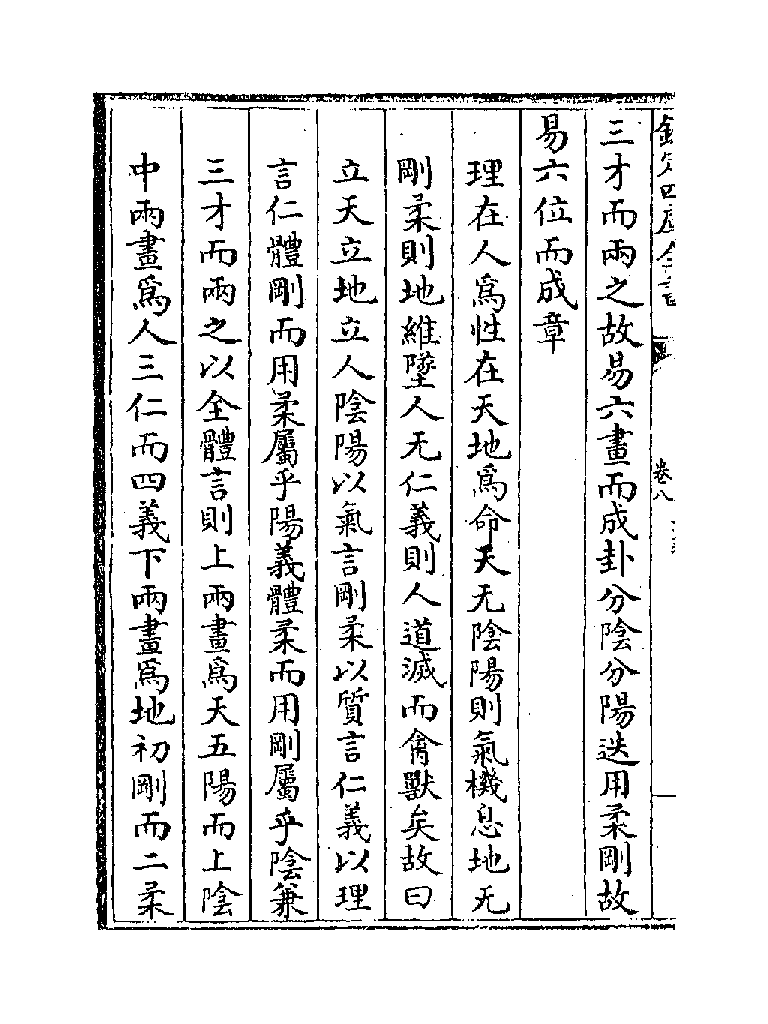 欽定四庫全書 卷八
三才而兩之故易六畫而成卦分陰分陽迭用柔剛故
易六位而成章
理在人爲性在天地爲命天无陰陽則氣機息地无
剛柔則地維墜人无仁義則人道滅而禽獸矣故曰
立天立地立人陰陽以氣言剛柔以質言仁義以理
言仁體剛而用柔屬乎陽義體柔而用剛屬乎陰兼
三才而兩之以全體言則上兩畫爲天五陽而上陰
中兩畫爲人三仁而四義下兩畫爲地初剛而二柔